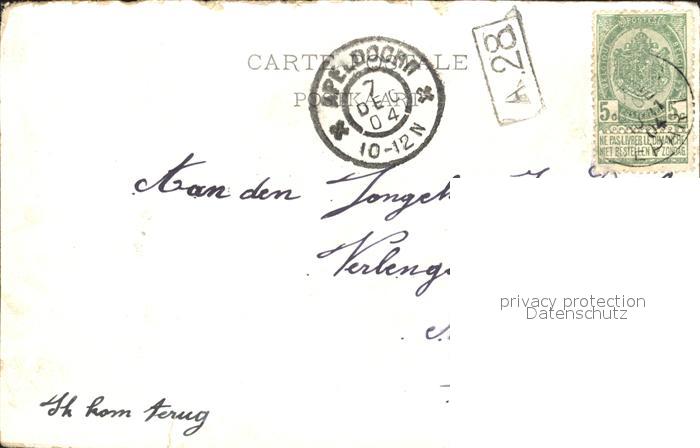 CARTE POSTALE
POSTKAART
APELDOORN
7
DEC
04
10-12N
A.28
POSTES
5c
NE PAS LIVRER LE DIMANCHE
NIET BESTELLEN OP ZONDAG
Aan den
Verleng
privacy protection
Datenschutz
Ik kom terug